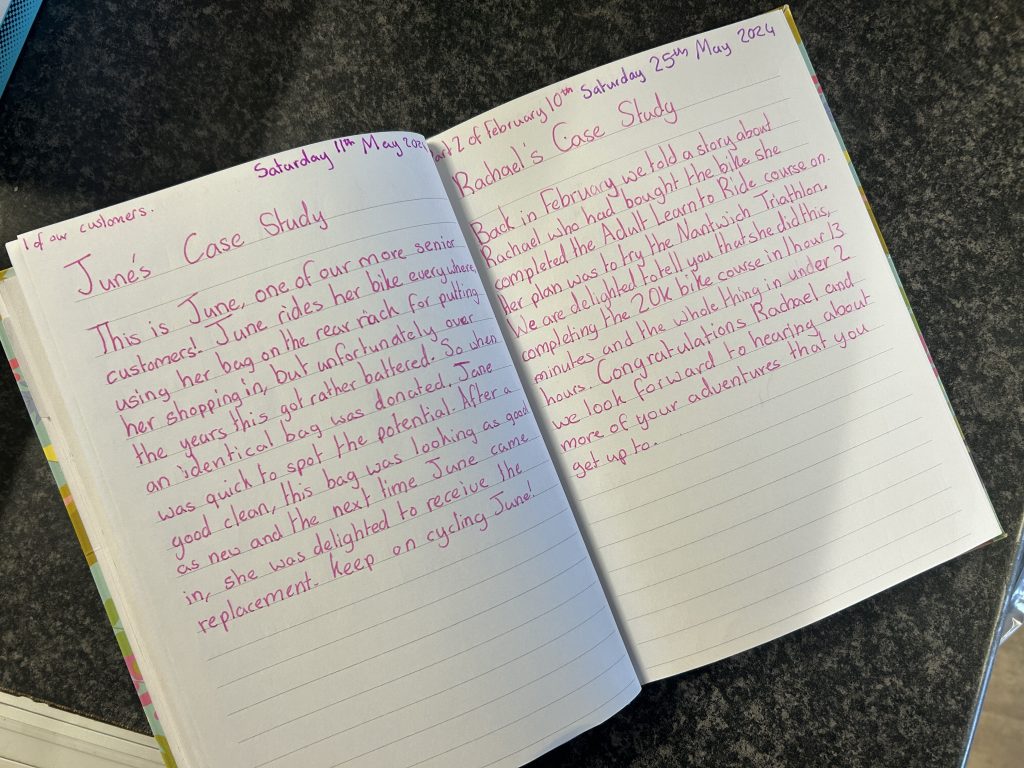 Saturday 11th May 2024
1 of our customers.
June's Case Study
This is June, one of our more senior
customers! June rides her bike everywhere
using her bag on the rear rack for putting
her shopping in, but unfortunately over
the years this got rather battered. So when
an identical bag was donated, Jane
was quick to spot the potential. After a
good clean, this bag was looking as good
as new and the next time June came
in, she was delighted to receive the
replacement. Keep on cycling June!
Part 2 of February 10th Saturday 25th May 2024
Rachael's Case Study
Back in February we told a story about
Rachael who had bought the bike she
completed the Adult Learn to Ride course on.
Her plan was to try the Nantwich Triathlon.
We are delighted to tell you that she did this,
completing the 20k bike course in 1 hour 13
minutes and the whole thing in under 2
hours. Congratulations Rachael and
we look forward to hearing about
more of your adventures that you
get up to.